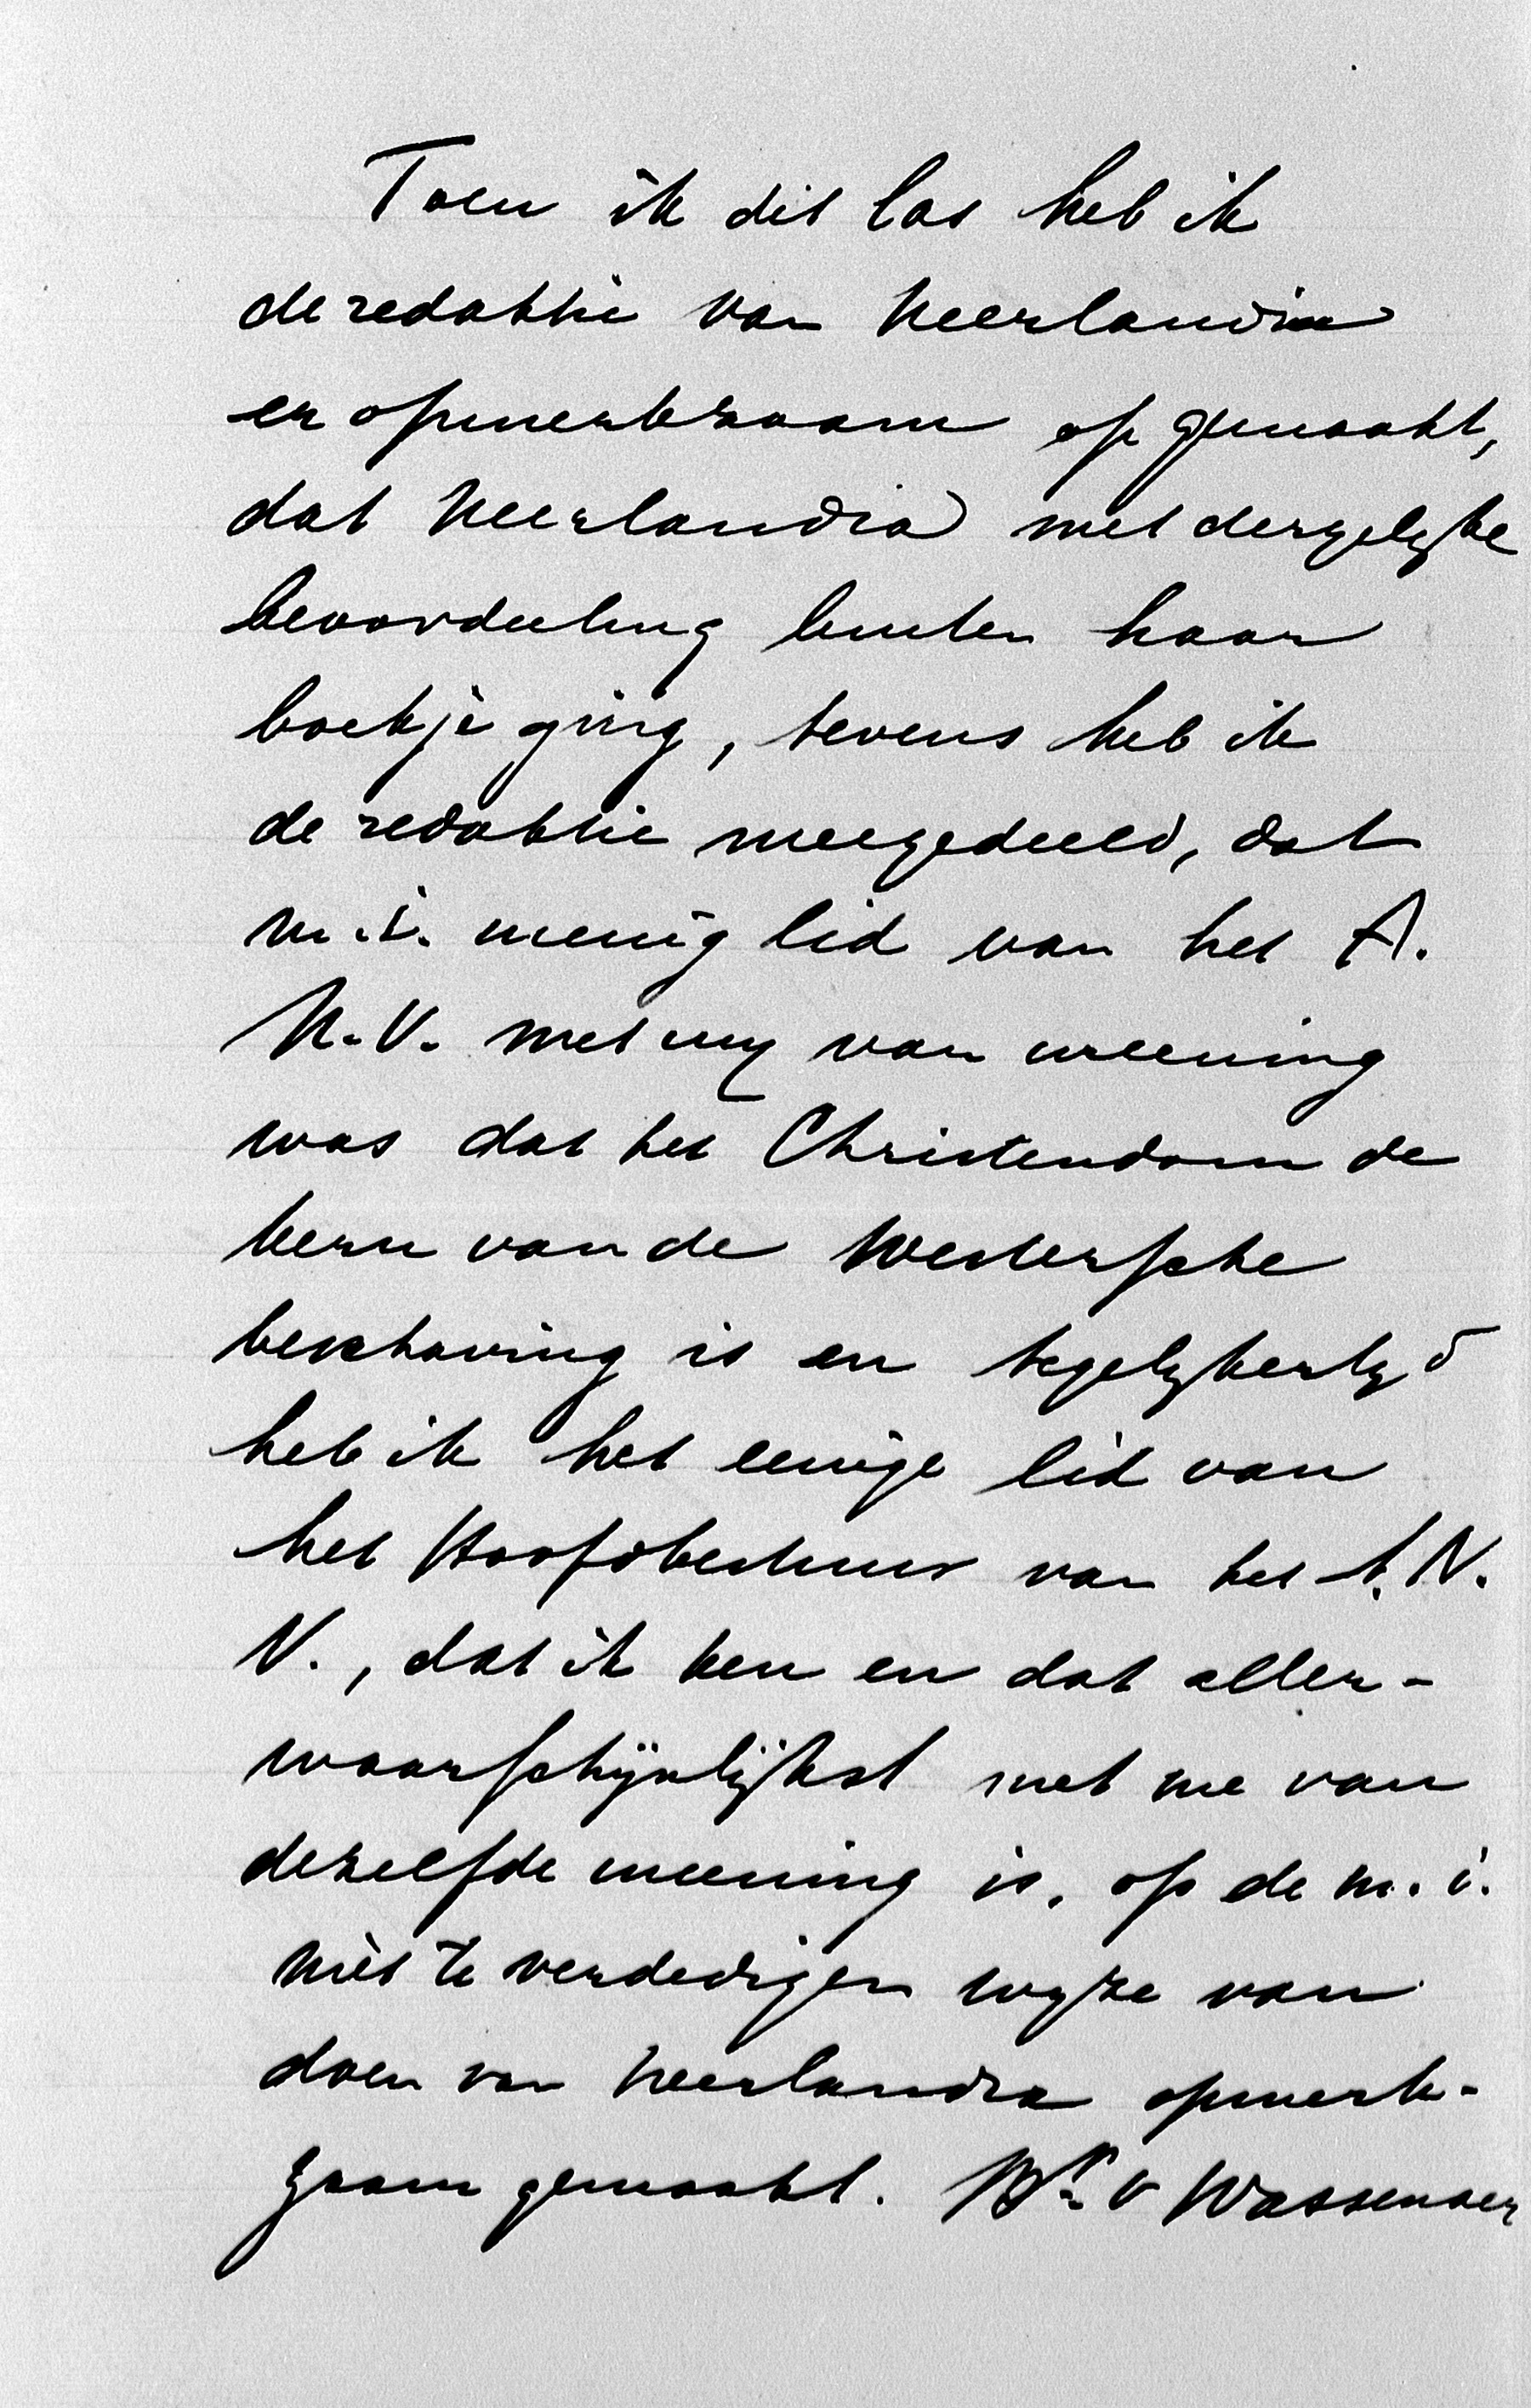 Toen ik dit las heb ik
de redaktie van Neerlandia
er opmerkzaam op gemaakt,
dat Neerlandia met dergelijke
beoordeeling buiten haar
boekje ging, tevens heb ik
de redaktie meegedeeld, dat
m.i. menig lid van het A.
N.V. met mij van meening
was dat het Christendom de
kern van de Westersche
beschaving is en tegelijkertijd
heb ik het eenige lid van
het Hoofdbestuur van het A.N.
V., dat ik ken en dat aller-
waarschijnlijkst met me van
dezelfde meening is, op de m.i.
niet te verdedigen wijze van
doen van Neerlandia opmerk-
zaam gemaakt. Bn v Wassenaer